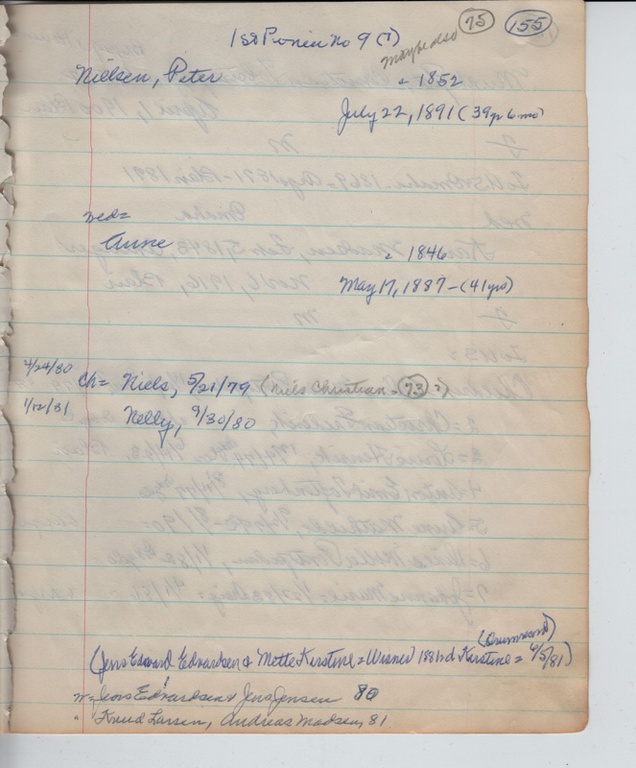 75 155
1st Pioneer No 9 (?)
maybe also
Nielsen, Peter = 1852
July 22, 1891 (39 yr 6 mo)
wed=
Anne = 1846
May 17, 1887 - (41 yrs)
4/24/80 Ch= Niels, 5/21/79 (Niels Christian = 73?)
1/12/81 Nelly, 9/30/80
(Jens Edward Edvardsen & Mette Kirstine = Wisner 1881 d Kirstine = 6/5/81)
w= Jens Edvardsen & Jens Jensen 80
" Knud Larsen, Andreas Madsen, 81.